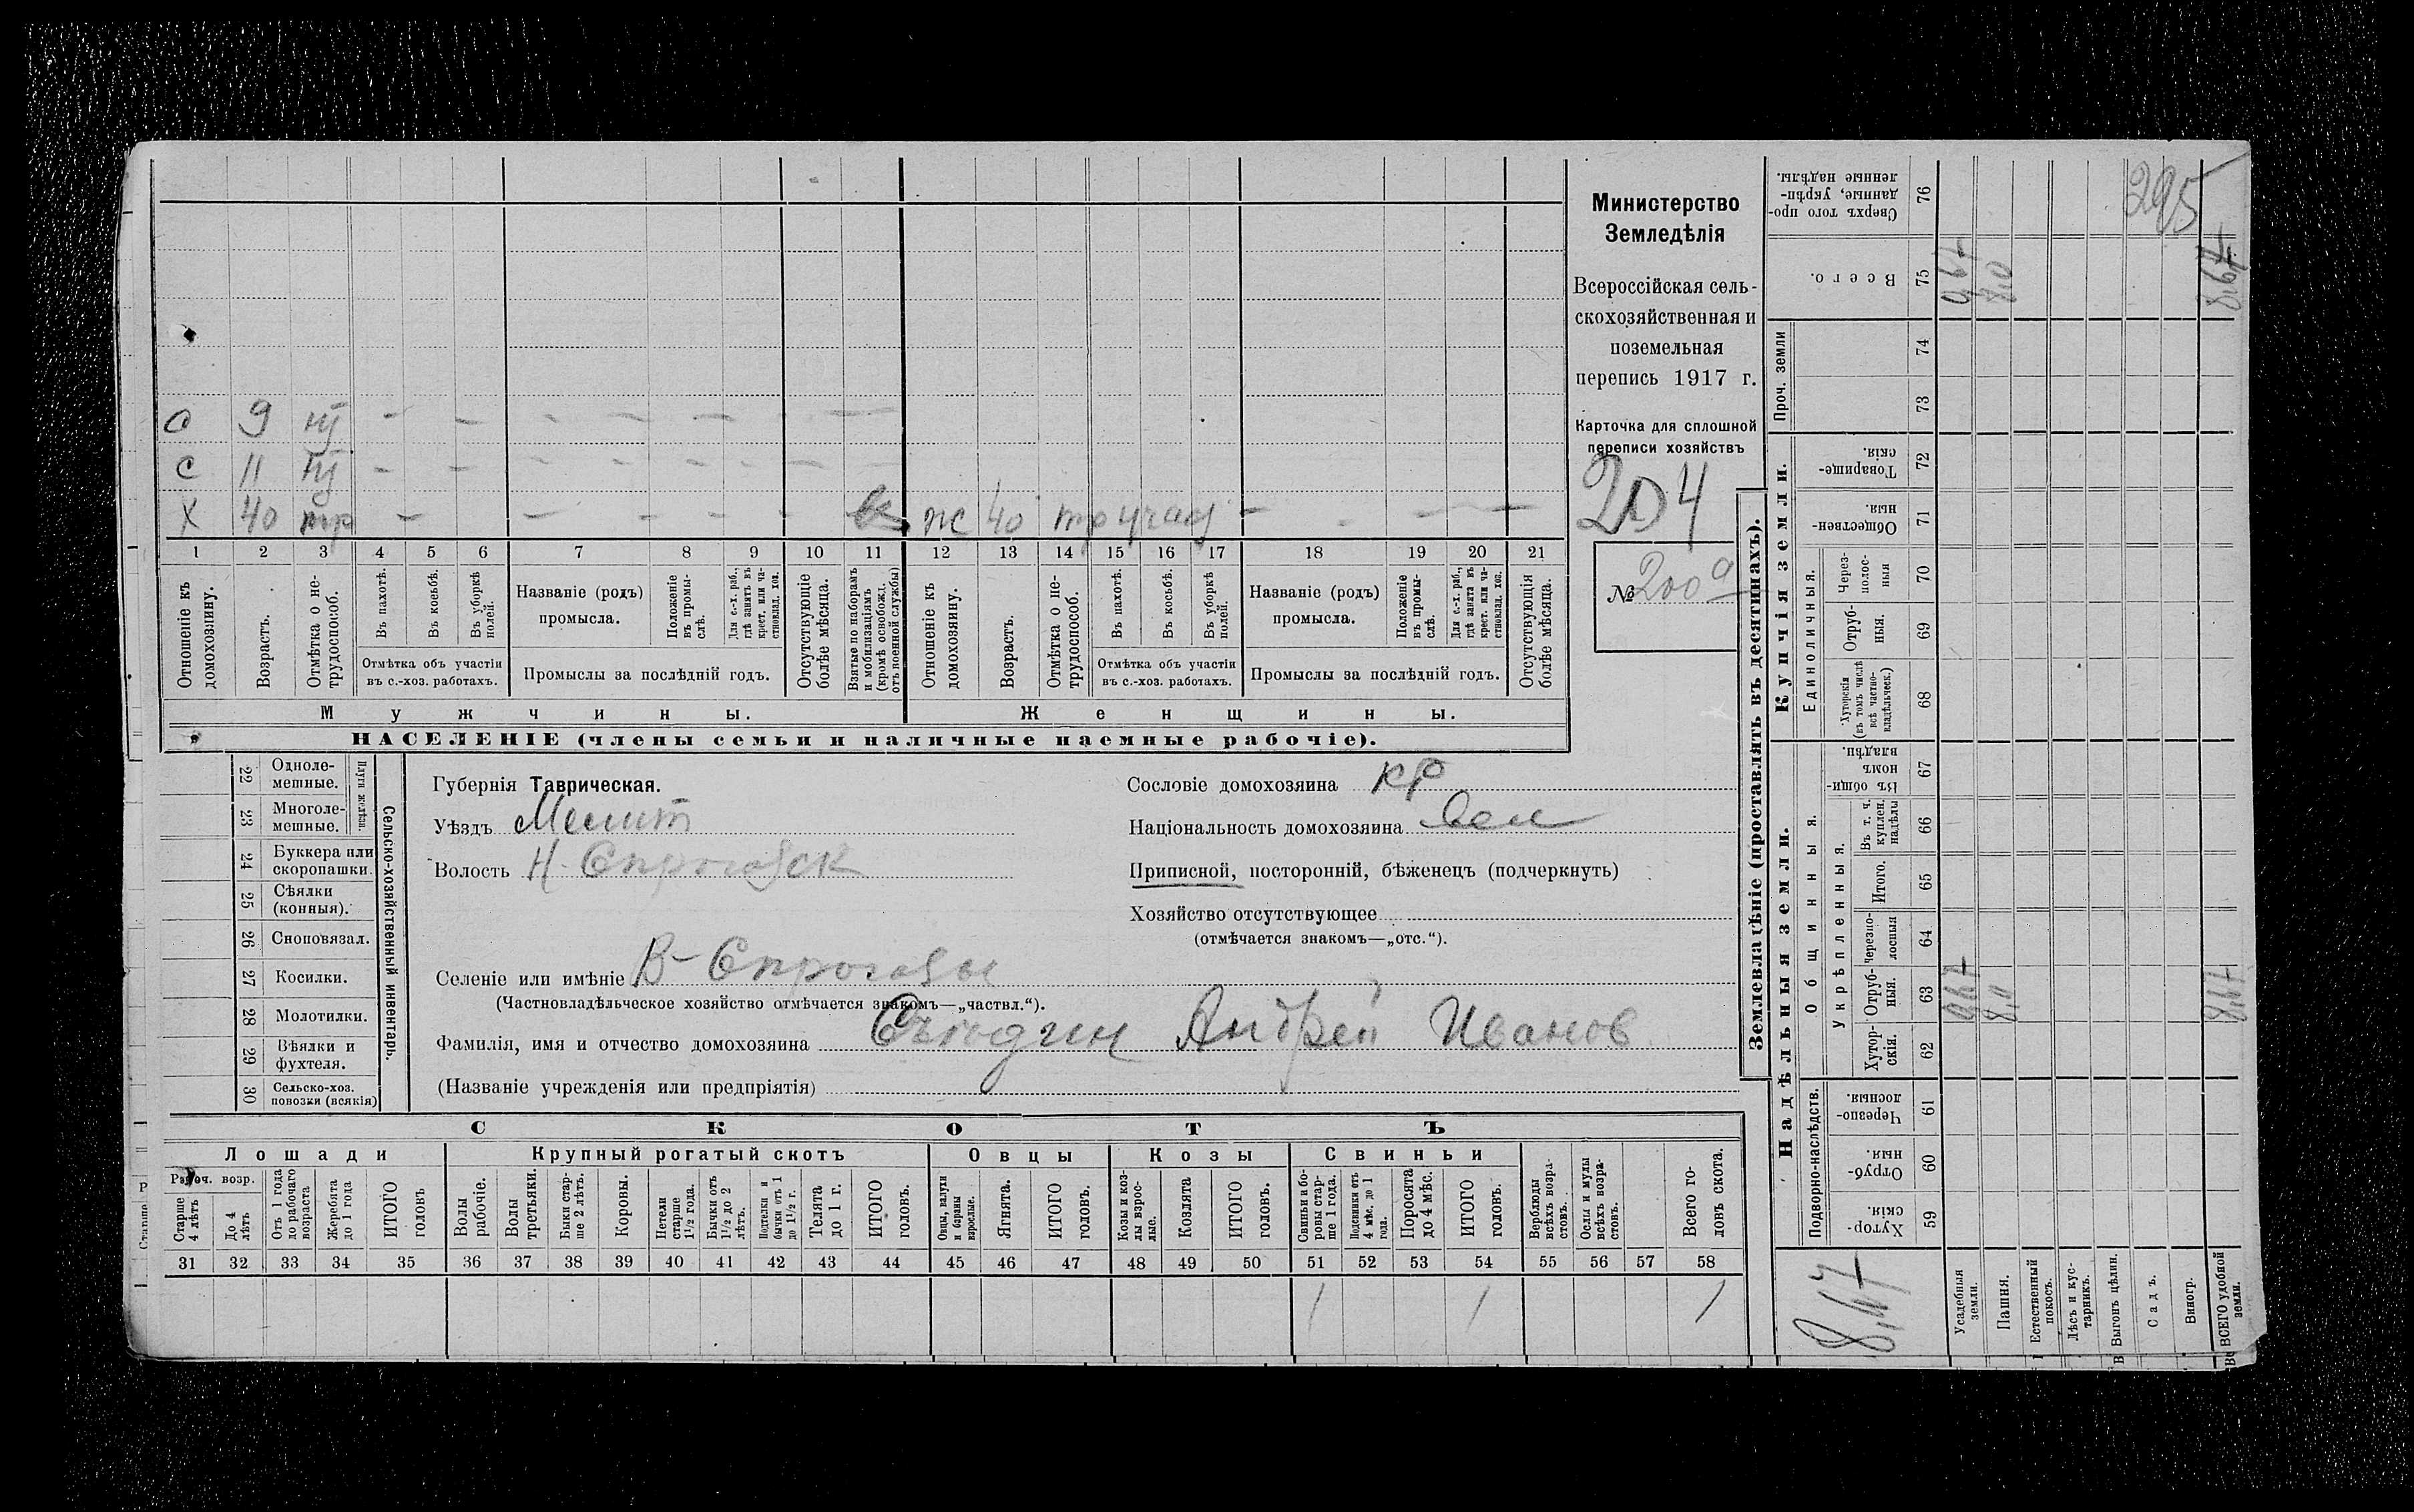 Министерство
Земледѣлія
Всероссійская сель-
скохозяйственная и
поземельная
перепись 1917 г.
Карточка для сплошной
переписи хозяйствъ
204
№ 200a
С 9 нт - - - - - - -
С 11 нт - - - - - - -
Х 40 тр - - - - - ж 40 тр - - - -
1 2 3 4 5 6 7 8 9 10 11 12 13 14 15 16 17 18 19 20 21
Отношеніе къ домохозяину.
Возрастъ.
Отмѣтка о не-трудоспособ.
Въ пахотѣ.
Въ косьбѣ.
Въ уборкѣ полей.
Отмѣтка объ участіи
въ с.-хоз. работахъ.
Названіе (родъ)
промысла.
Положеніе въ промы-слѣ.
Для с.-х. раб., гдѣ занятъ въ крест. или ча-стновлад. хоз.
Промыслы за послѣдній годъ.
Отсутствующіе болѣе мѣсяца.
Взятые по наборамъ и мобилизаціямъ (кромѣ освобожд. отъ военной службы)
Отношеніе къ домохозяину.
Возрастъ.
Отмѣтка о не-трудоспособ.
Въ пахотѣ.
Въ косьбѣ.
Въ уборкѣ полей.
Отмѣтка объ участіи
въ с.-хоз. работахъ.
Названіе (родъ)
промысла.
Положеніе въ промы-слѣ.
Для с.-х. раб., гдѣ занята въ крест. или ча-стновлад. хоз.
Промыслы за послѣдній годъ.
Отсутствующія болѣе мѣсяца.
Мужчины. Женщины.
НАСЕЛЕНІЕ (члены семьи и наличные наемные рабочіе).
22 Одноле-мешные.
23 Многоле-мешные.
Плуги желѣзн.
24 Буккера или скоропашки.
25 Сѣялки (конныя).
26 Сноповязал.
27 Косилки.
28 Молотилки.
29 Вѣялки и фухтеля.
30 Сельско-хоз. повозки (всякія)
Сельско-хозяйственный инвентарь.
Губернія Таврическая.
Уѣздъ Мелит
Волость Н-Сирогозск
Селеніе или имѣніе В-Сирогозы
(Частновладѣльческое хозяйство отмѣчается знакомъ—„частвл.“).
Фамилія, имя и отчество домохозяина Андрей Иванов
(Названіе учрежденія или предпріятія)
Сословіе домохозяина кр
Національность домохозяина вел
Приписной, посторонній, бѣженецъ (подчеркнуть)
Хозяйство отсутствующее
(отмѣчается знакомъ—„отс.“).
СКОТЪ
Лошади Крупный рогатый скотъ Овцы Козы Свиньи
Рабоч. возр.
Старше 4 лѣтъ
До 4 лѣтъ
Отъ 1 года до рабочаго возраста
Жеребята до 1 года
ИТОГО головъ
Волы рабочіе.
Волы третьяки.
Быки стар-ше 2 лѣтъ.
Коровы.
Нетели старше 1½ года.
Бычки отъ 1½ до 2 лѣтъ.
Подтелки и бычки отъ 1 до 1½ г.
Телята до 1 г.
ИТОГО головъ.
Овцы, валухи и бараны взрослые.
Ягнята.
ИТОГО головъ.
Козы и коз-лы взрос-лые.
Козлята
ИТОГО головъ.
Свиньи и бо-ровы стар-ше 1 года.
Подсвинки отъ 4 мѣс. до 1 года.
Поросята до 4 мѣс.
ИТОГО головъ.
Верблюды всѣхъ возра-стовъ.
Ослы и мулы всѣхъ возра-стовъ.
Всего го-ловъ скота.
31 32 33 34 35 36 37 38 39 40 41 42 43 44 45 46 47 48 49 50 51 52 53 54 55 56 57 58
1 1 1
Землевладѣніе (проставлять въ десятинахъ).
Надѣльныя земли. Купчія земли. Проч. земли
Подворно-наслѣдств.
Общинныя.
Укрѣпленныя.
Единоличныя.
Хутор-скія. 59
Отруб-ныя. 60
Черезпо-лосныя. 61
Хутор-скія. 62
Отруб-ныя. 63
Черезпо-лосныя 64
Итого. 65
Въ т. ч. куплен. надѣлы 66
Въ общи-номъ владѣн. 67
Хуторскія (въ томъ числѣ всѣ частно-владѣльческ.) 68
Отруб-ныя. 69
Через-полос-ныя 70
Обществен-ныя. 71
Товарище-скія. 72
73
74
Всего. 75
Сверхъ того про-данные, укрѣп-ленные надѣлы. 76
Усадебныя земли.
Пашня.
Естественный покосъ.
Лѣсъ и кус-тарникъ.
Выгонъ цѣлин.
Садъ.
Виногр.
ВСЕГО удобной земли.
0,67
8,0
8,67
0,67
8,0
8,67
8,67
295